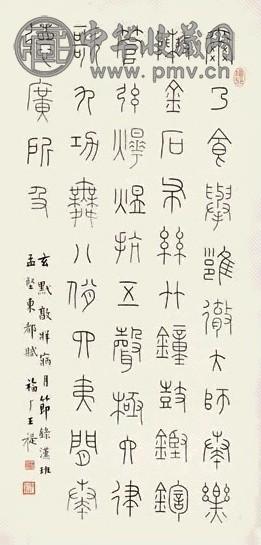 中华收藏网
www.pmv.cn
爾乃食舉雍徹大師奏樂
陳金石布絲竹鐘鼓鏗鍧
管弦燁煜抗五聲極六律
歌九功舞八佾四夷間奏
德廣所及
玄黓敦牂病月節錄漢班
孟堅東都賦 福厂王禔